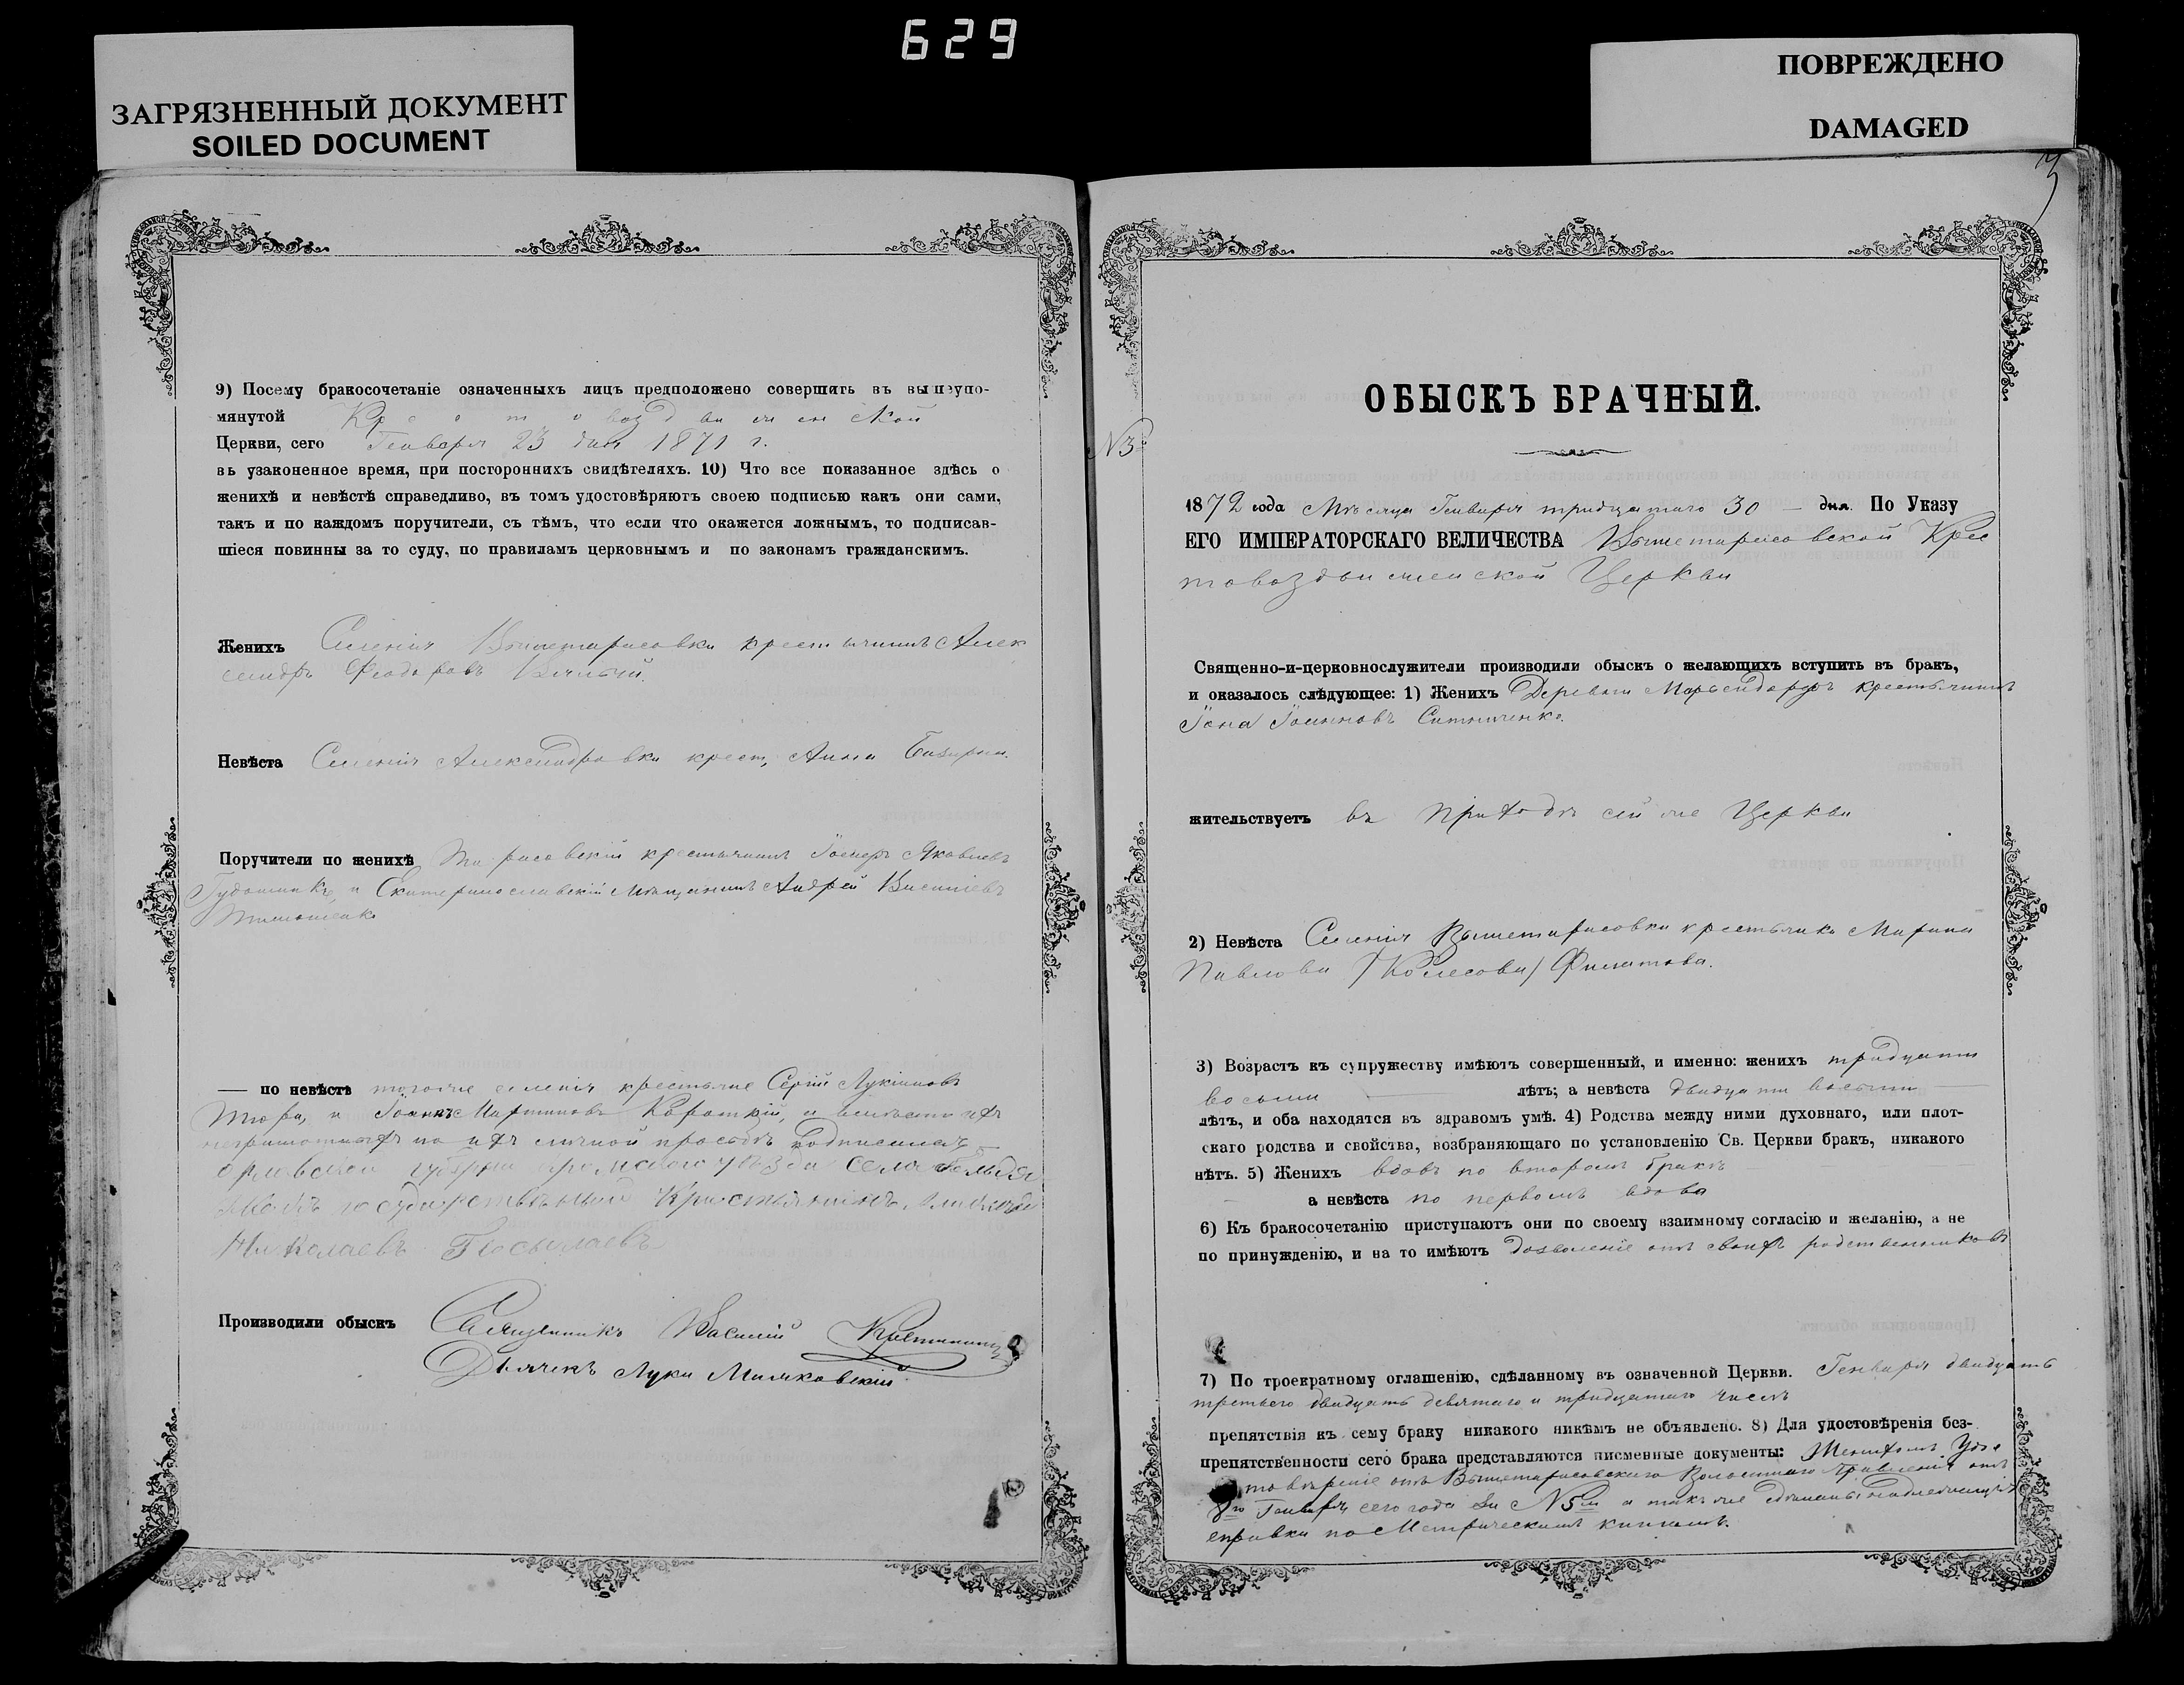 629
ЗАГРЯЗНЕННЫЙ ДОКУМЕНТ
SOILED DOCUMENT
ПОВРЕЖДЕНО
DAMAGED
9) Посему бракосочетаніе означенныхъ лицъ предположено совершить въ вышеупо-
мянутой Крестовоздвиженской
Церкви, сего Генваря 23 дня 1871 г.
въ узаконенное время, при постороннихъ свидѣтеляхъ. 10) Что все показанное здѣсь о
женихѣ и невѣстѣ справедливо, въ томъ удостовѣряютъ своею подписью какъ они сами,
такъ и по каждомъ поручители, съ тѣмъ, что если что окажется ложнымъ, то подписав-
шіеся повинны за то суду, по правиламъ церковнымъ и по законамъ гражданскимъ.
Женихъ Селенія Вышетарасовки крестьянинъ Алек
сандръ Феодоровъ
Невѣста Селенія Александровки крест. Анна
Поручители по женихѣ Тарасовскій крестьянинъ Яковлевъ
и Екатеринославскій мѣщанинъ Андрей Васильевъ
Тимошенко
— по невѣстѣ тогоже селенія крестьяне Сергій Лукіановъ
и Іоаннъ Мартиновъ Короткій, а вмѣсто ихъ
неграмотныхъ по ихъ личной просьбѣ подписался
Орловской губерніи Кромскаго уѣзда села
государственный крестьянинъ
Николаевъ
Производили обыскъ Священникъ Василій
Дьячекъ Лука
ОБЫСКЪ БРАЧНЫЙ.
N 3
1872 года Мѣсяца Генваря тридцатаго 30 — дня. По Указу
ЕГО ИМПЕРАТОРСКАГО ВЕЛИЧЕСТВА Вышетарасовской Крес
товоздвиженской Церкви
Священно-и-церковнослужители производили обыскъ о желающихъ вступить въ бракъ,
и оказалось слѣдующее: 1) Женихъ Деревни крестьянинъ
Іона Іоанновъ Ситниченко.
жительствуетъ въ приходѣ сей же Церкви
2) Невѣста Селенія Вышетарасовки крестьянка Марина
Павлова /Колесова/ Филатова.
3) Возрастъ къ супружеству имѣютъ совершенный, и именно: женихъ тридцати
восьми — лѣтъ; а невѣста двадцати восьми —
лѣтъ, и оба находятся въ здравомъ умѣ. 4) Родства между ними духовнаго, или плот-
скаго родства и свойства, возбраняющаго по установленію Св. Церкви бракъ, никакого
нѣтъ. 5) Женихъ вдовъ по второмъ бракѣ
а невѣста по первомъ вдова
6) Къ бракосочетанію приступаютъ они по своему взаимному согласію и желанію, а не
по принужденію, и на то имѣютъ дозволеніе отъ своихъ родственниковъ
7) По троекратному оглашенію, сдѣланному въ означенной Церкви. Генваря двадцать
третьяго двадцать девятаго и тридцатаго чиселъ
препятствія къ сему браку никакого никѣмъ не объявлено. 8) Для удостовѣренія без-
препятственности сего брака представляются писменные документы: Женихомъ Удос
товѣреніе отъ Вышетарасовскаго Волостнаго Правленія отъ
Генваря сего года за N 5 а такъ же сдѣланы надлежащія
справки по Метрическимъ книгамъ.